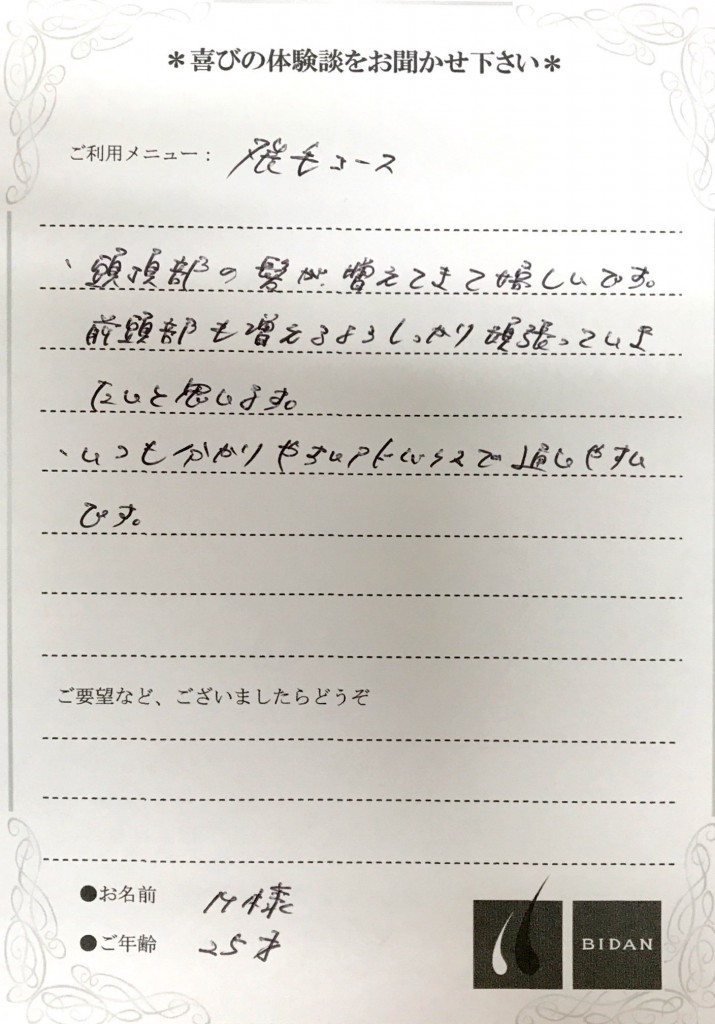 ＊喜びの体験談をお聞かせ下さい＊
ご利用メニュー： 発毛コース
、頭頂部の髪が増えてきて嬉しいです。
前頭部も増えるようしっかり頑張っていき
たいと思います。
、いつも分かりやすいアドバイスで通いやすい
です。
ご要望など、ございましたらどうぞ
●お名前 M様
●ご年齢 25才
BIDAN